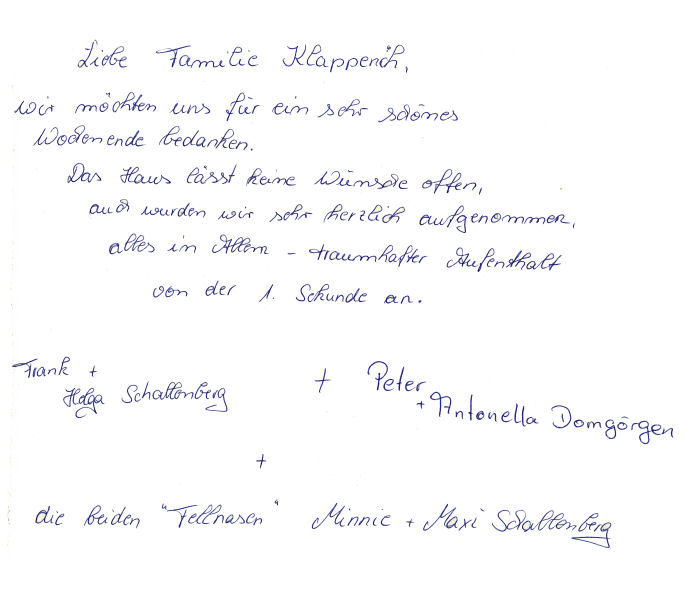 Liebe Familie Klapperich,
wir möchten uns für ein sehr schönes
Wochenende bedanken.
Das Haus lässt keine Wünsche offen,
auch wurden wir sehr herzlich aufgenommen,
alles in Allem - traumhafter Aufenthalt
von der 1. Sekunde an.
Frank +
Helga Schallenberg
+ Peter
+ Antonella Domgörgen
+
die beiden "Fellnasen" Minnie + Maxi Schallenberg